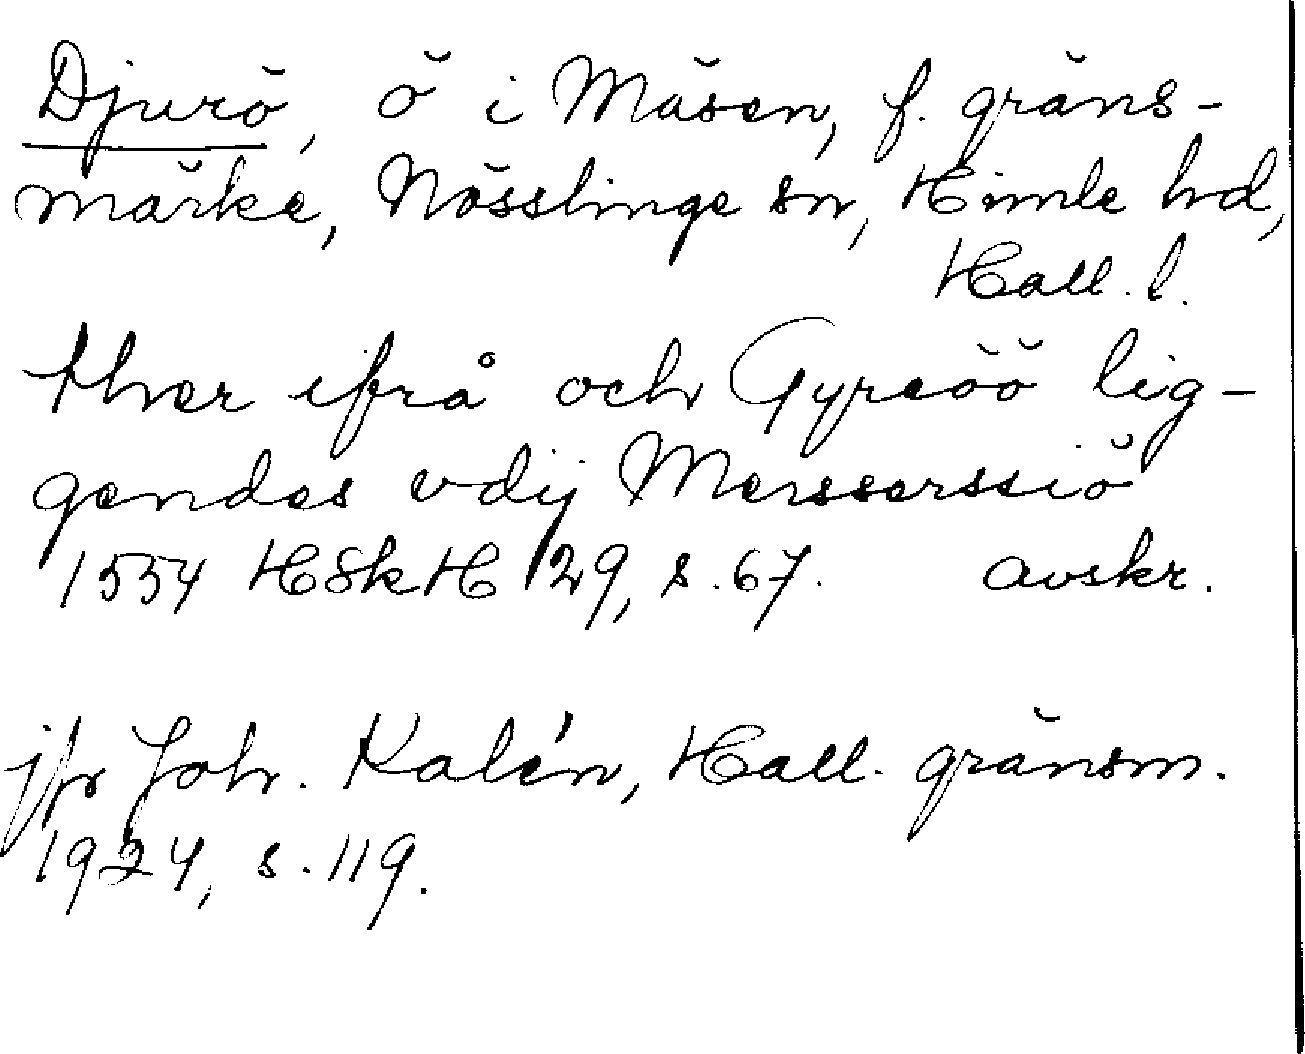 Djurö, ö i Mäsen, f. gräns-
märke, Nösslinge sn, Himle hd,
Hall. l.
ther ifrå och Gyreöö lig-
gendes vdij Mersserssiö
1554 HSkH 29, s. 67. avskr.
jfr Joh. Kalén, Hall. gränsm.
1924, s. 119.